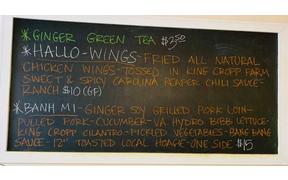 *GINGER GREEN TEA $3.50
*HALLO-WINGS-FRIED ALL NATURAL
CHICKEN WINGS-TOSSED IN KING CROPP FARM
SWEET & SPICY CAROLINA REAPER CHILI SAUCE-
RANCH $10 (GF)
*BANH MI-GINGER SOY GRILLED PORK LOIN-
PULLED PORK-CUCUMBER-VA HYDRO BIBB LETTUCE-
KING CROPP CILANTRO-PICKLED VEGETABLES-BANG BANG
SAUCE-12" TOASTED LOCAL HOAGIE-ONE SIDE $15